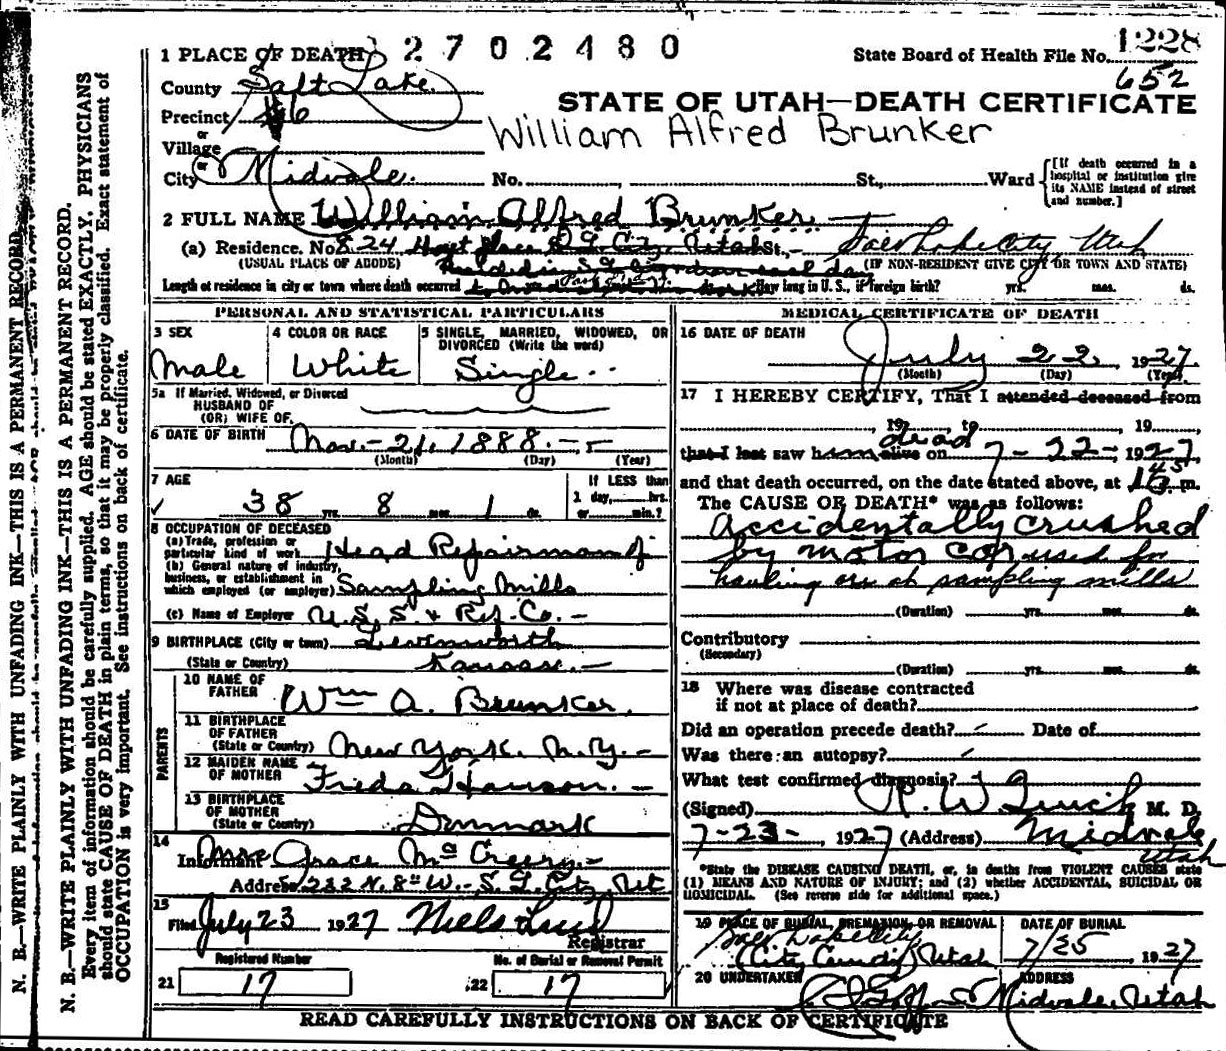 2702480
State Board of Health File No. 1228
652
1 PLACE OF DEATH
County Salt Lake
Precinct 46
or
Village
or
City Midvale. No. , St., Ward
[If death occurred in a hospital or institution give its NAME instead of street and number.]
STATE OF UTAH—DEATH CERTIFICATE
William Alfred Brunker
2 FULL NAME William Alfred Brunker
(a) Residence. No. 824 Hoyt place S. L. City, Utah St., Salt Lake City Utah
(USUAL PLACE OF ABODE) (IF NON-RESIDENT GIVE CITY OR TOWN AND STATE)
Length of residence in city or town where death occurred How long in U. S., if foreign birth? yrs. mos. ds.
PERSONAL AND STATISTICAL PARTICULARS
3 SEX
Male
4 COLOR OR RACE
White
5 SINGLE, MARRIED, WIDOWED, OR DIVORCED (Write the word)
Single
5a If Married, Widowed, or Divorced
HUSBAND OF
(OR) WIFE OF
6 DATE OF BIRTH Nov. - 21, 1888. -
(Month) (Day) (Year)
7 AGE
38 yrs. 8 mos. 1 ds.
If LESS than
1 day, hrs.
or min.?
8 OCCUPATION OF DECEASED
(a) Trade, profession or particular kind of work Head Repairman of
(b) General nature of industry, business, or establishment in which employed (or employer) Sampling Mills
(c) Name of Employer U. S. S. & Ref. Co. -
9 BIRTHPLACE (City or town) Levenworth
(State or Country) Kansas. -
PARENTS
10 NAME OF FATHER Wm A. Brunker.
11 BIRTHPLACE OF FATHER
(State or Country) New York. N. Y. -
12 MAIDEN NAME OF MOTHER Freda Hanson. -
13 BIRTHPLACE OF MOTHER
(State or Country) Denmark
14
Informant Mrs Grace McCreery. -
Address 232 N. 8th W. - S. L. City, Ut
15
Filed July 23 1927 Niels Lind
Registrar
Registered Number
21 17
No. of Burial or Removal Permit
22 17
MEDICAL CERTIFICATE OF DEATH
16 DATE OF DEATH
July 22 1927
(Month) (Day) (Year)
17 I HEREBY CERTIFY, That I attended deceased from
, 19 , to , 19 ,
that I last saw him alive dead on 7 - 22 -, 1927
and that death occurred, on the date stated above, at m.
The CAUSE OF DEATH* was as follows:
Accidentally crushed
by motor car used for
hauling ore at sampling mills
(Duration) yrs. mos. ds.
Contributory
(Secondary)
(Duration) yrs. mos. ds.
18 Where was disease contracted
if not at place of death?
Did an operation precede death? Date of
Was there an autopsy?
What test confirmed diagnosis?
(Signed) R. W. M. D.
7-23-, 1927 (Address) Midvale
Utah
*State the DISEASE CAUSING DEATH, or, in deaths from VIOLENT CAUSES state
(1) MEANS AND NATURE OF INJURY; and (2) whether ACCIDENTAL, SUICIDAL OR
HOMICIDAL. (See reverse side for additional space.)
19 PLACE OF BURIAL, CREMATION, OR REMOVAL
Salt Lake City
City Utah
DATE OF BURIAL
7/25, 1927
20 UNDERTAKER
ADDRESS
Midvale, Utah
READ CAREFULLY INSTRUCTIONS ON BACK OF CERTIFICATE
N. B.—WRITE PLAINLY WITH UNFADING INK—THIS IS A PERMANENT RECORD.
Every item of information should be carefully supplied. AGE should be stated EXACTLY. PHYSICIANS
should state CAUSE OF DEATH in plain terms, so that it may be properly classified. Exact statement of
OCCUPATION is very important. See instructions on back of certificate.
N. B.—WRITE PLAINLY WITH UNFADING INK—THIS IS A PERMANENT RECORD